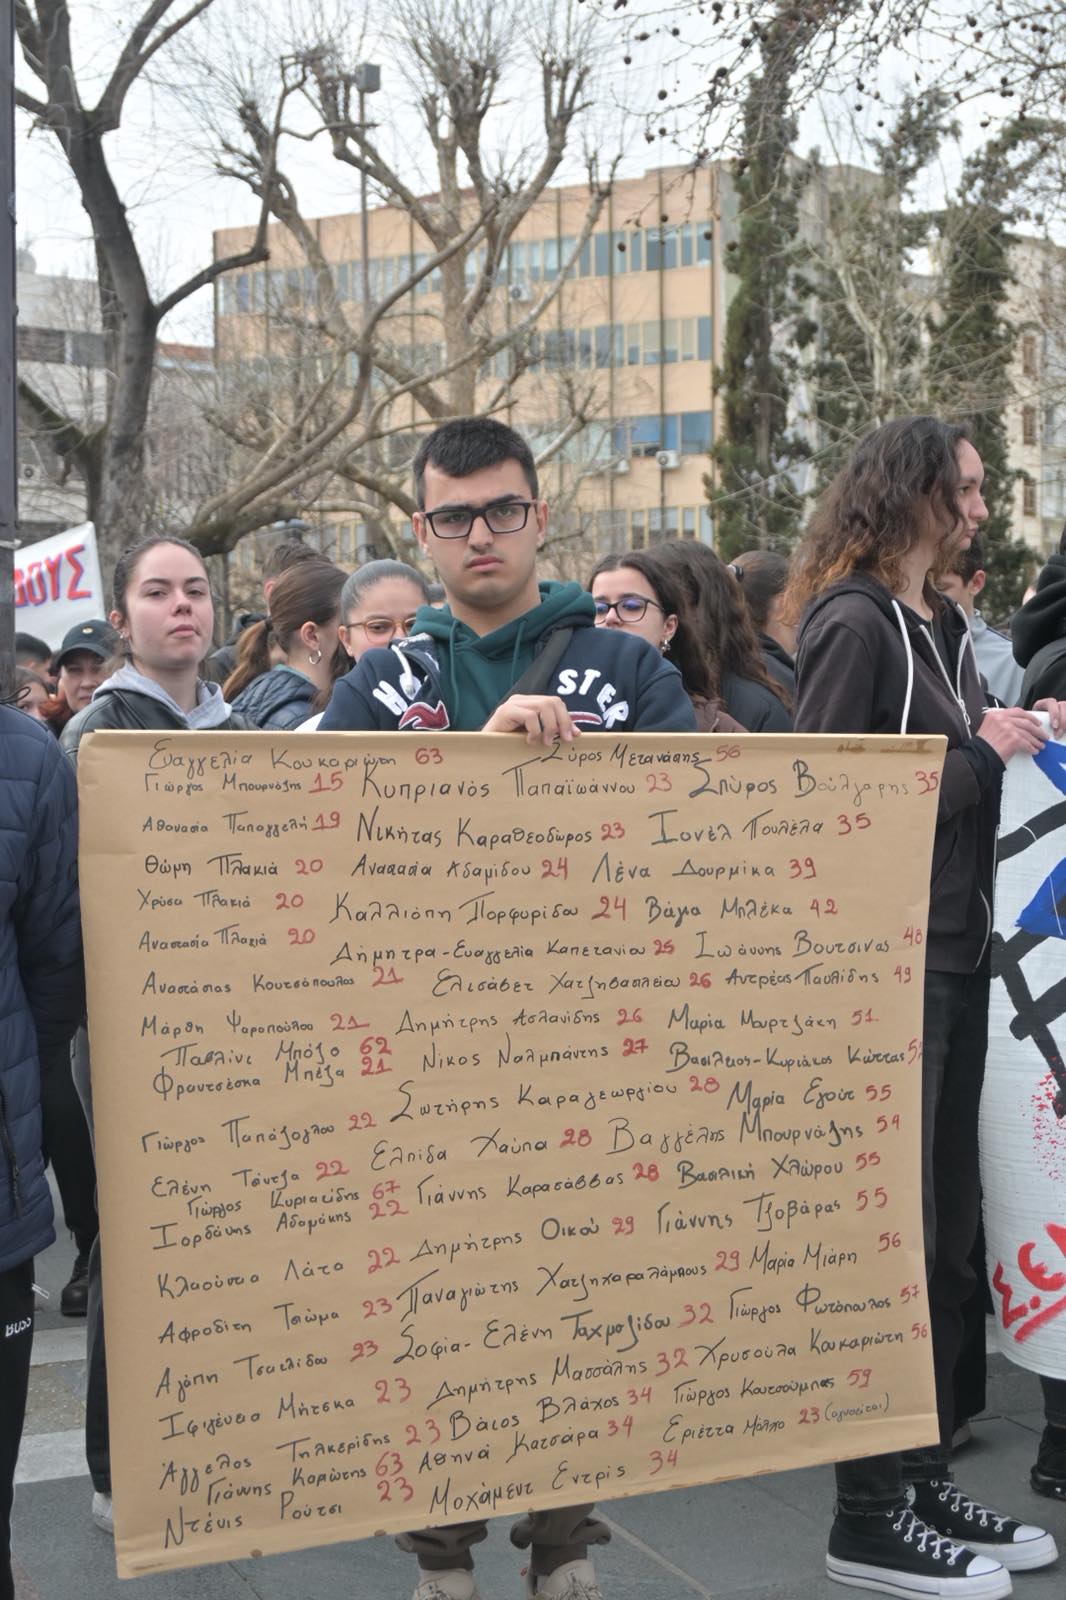 ΟΥΣ
HO
STER
Ευαγγελία Κουκαριώτη 63 Σύρος Μετανάστης 56
Γιώργος Μπουρνάζης 15 Κυπριανός Παπαϊωάννου 23 Σπύρος Βούλγαρης 35
Αθανασία Παπαγγελή 19 Νικήτας Καραθεοδώρος 23 Ιονέλ Πουλέλα 35
Θώμη Πλακιά 20 Αναστασία Αδαμίδου 24 Λένα Δουρμίκα 39
Χρύσα Πλακιά 20 Καλλιόπη Πορφυρίδου 24 Βάγια Μπλέκα 42
Αναστασία Πλακιά 20 Δήμητρα-Ευαγγελία Καπετανίου 25 Ιωάννης Βουτσινάς 48
Αναστάσιος Κουτσόπουλος 21 Ελισάβετ Χατζηβασιλείου 26 Αντρέας Παυλίδης 49
Μάρθη Ψαροπούλου 21 Δημήτρης Ασλανίδης 26 Μαρία Μουρτζάκη 51
Παβλίνε Μπόζο 62
Φραντσέσκα Μπέζα 21 Νίκος Ναλμπάντης 27 Βασίλειος-Κυριάκος Κώττας
Γιώργος Παπάζογλου 22 Σωτήρης Καραγεωργίου 28 Μαρία Εγούτ 55
Ελένη Τσίντζα 22 Ελπίδα Χούπα 28 Βαγγέλης Μπουρνάζης 54
Γιώργος Κυριακίδης 67
Ιορδάνης Αδαμάκης 22 Γιάννης Καρασάββας 28 Βασιλική Χλώρου 55
Κλαούντια Λάτα 22 Δημήτρης Οικού 29 Γιάννης Τζοβάρας 55
Αφροδίτη Τσιώμα 23 Παναγιώτης Χατζηχαραλάμπους 29 Μαρία Μιάρη 56
Αγάπη Τσακλίδου 23 Σοφία-Ελένη Ταχμαζίδου 32 Γιώργος Φωτόπουλος 57
Ιφιγένεια Μήτσκα 23 Δημήτρης Μασσάλης 32 Χρυσούλα Κουκαριώτη 56
Άγγελος Τηλκερίδης 23 Βάιος Βλάχος 34 Γιώργος Κουτσούμπας 59
Γιάννης Καριώτης 63 Αθηνά Κατσάρα 34 Εριέττα Μόλχο 23 (αγνοείται)
Ντένις Ρούτσι 23 Μοχάμεντ Εντρίς 34
Σ.Ε